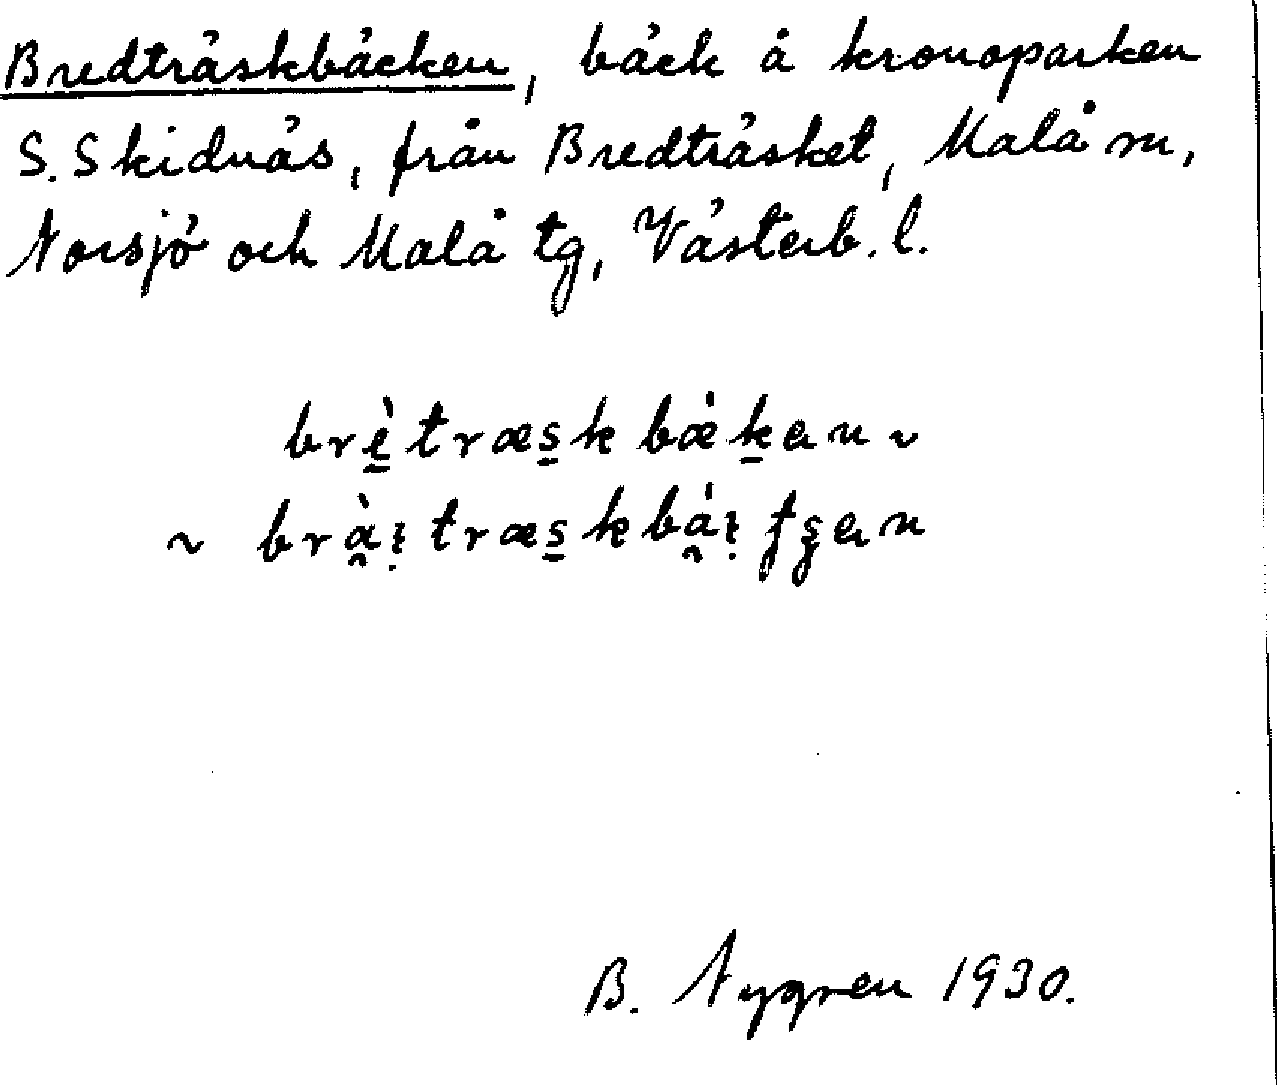 Bredträskbäcken, bäck å kronoparken
S. Skidnäs, från Bredträsket, Malå sn,
Norsjö och Malå tg, Västerb. l.
brè̱træs̱k bǽḵen ~
~ bràitræs̱kbáitʂen
B. Nygren 1930.